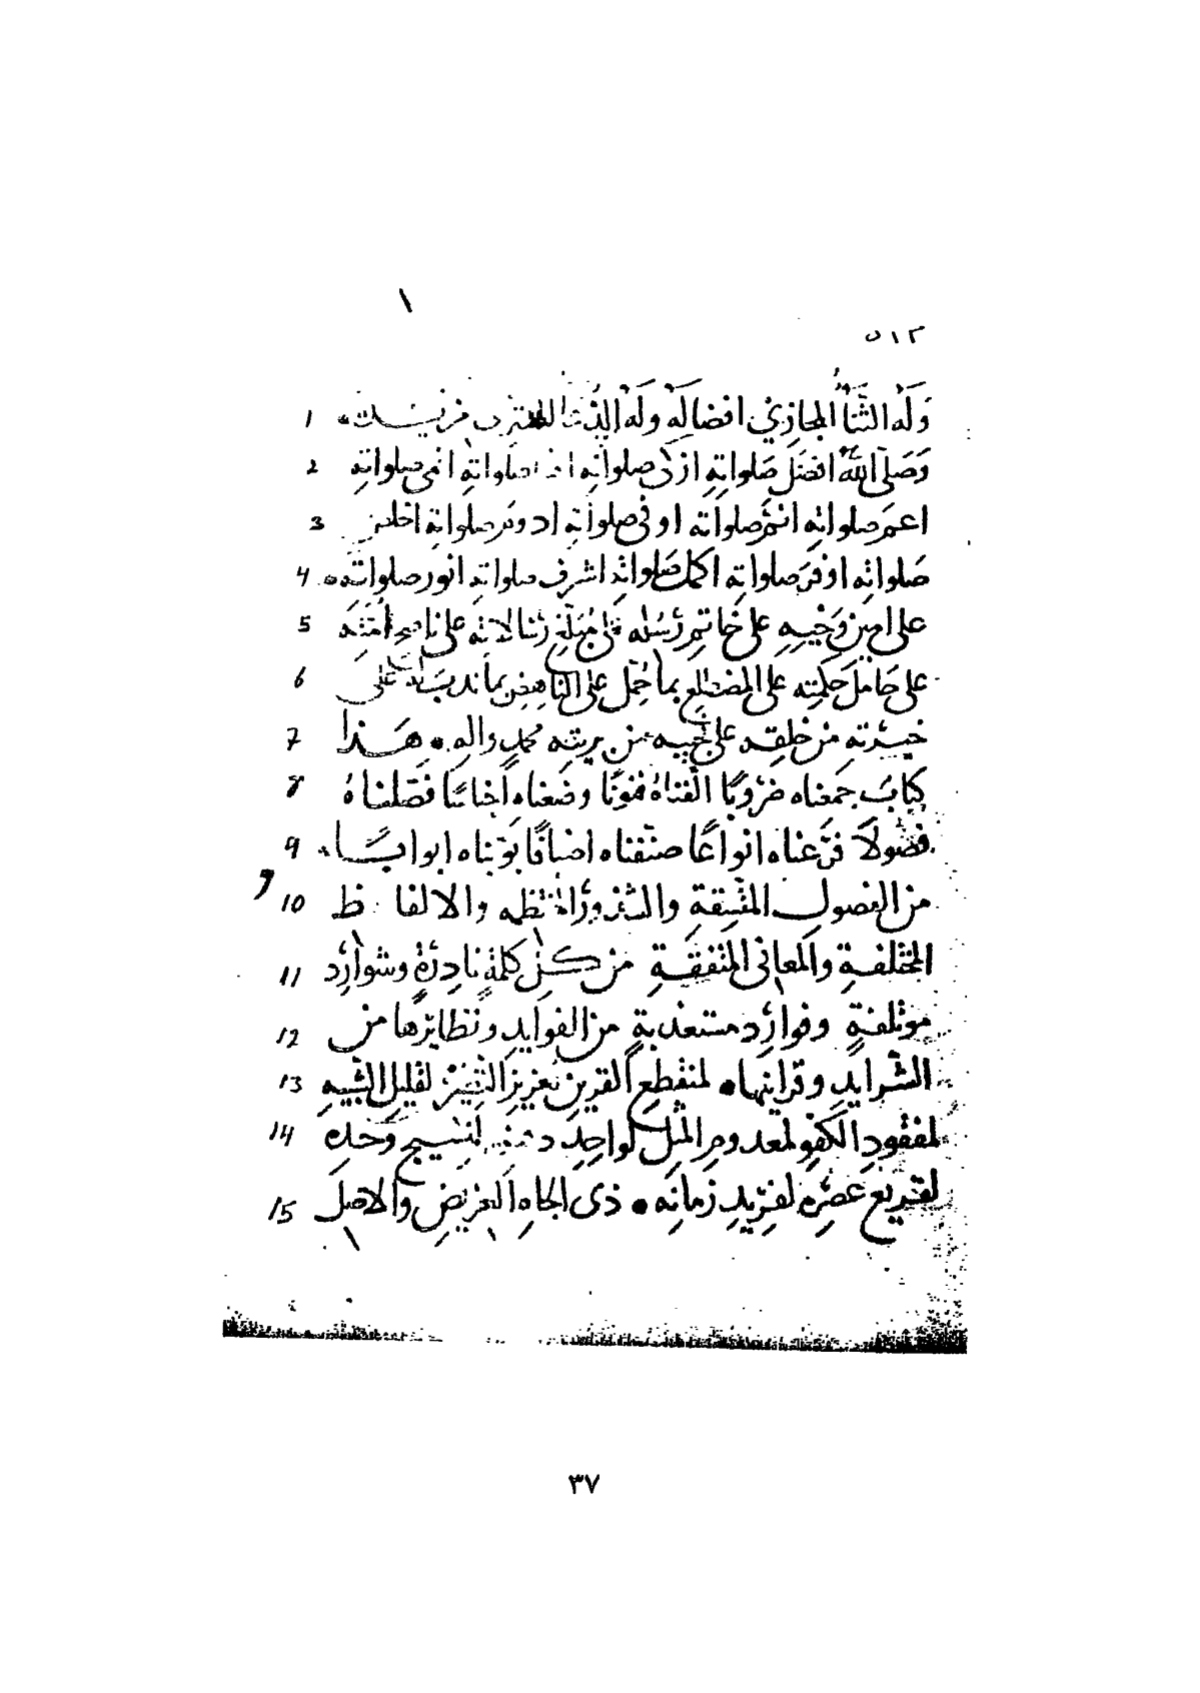 ١
٥١٢
وَلَه الثَّنَاُ المجازيْ افضالَه وَلَه 1
وَصَلّى اللهُ افضَلَ صَلواتِهِ ازكى صلواتِه صلواتِهِ انمى صلواتِهِ 2
اعمَر صلواتِهِ اتمَّ صلواتَه اوفى صلواتِه ادومَ صلواتِهِ 3
صَلواتِه اوفَرَ صلواتِهِ اكملَ صَلواتِه اشرفَ صلواتِه انورَ صلواتِه 4
على امينِ وَحْيِهِ على خَاتمِ رُسُلِه على مُبَلِّغِ رِسَالاتِه على ناصحِ امَّتِه 5
على حَامِلِ حِكْمَتِه على المضطلعِ بما حُمِّل على الناهِضِ بما على 6
خيرَتِهِ من خلقِه على من بريّتِه محمدٍ وآلهِ ٠ هَذا 7
كتابٌ جمَعْناه ضرُوبًا الّفناهُ فنونًا وضَعناه أجناسًا فصّلناهُ 8
فصُولاً فرّعناه انواعًا صنّفناه اصنافًا بَوّبناه ابوابًا 9
من الفصولِ المتّسِقةِ والالفاظ 10
و
المختلفةِ والمعانى المتفقةِ من كلِّ كلمةٍ نادِرَةٍ وشوارِد 11
موتلفةٍ وفوارِدَ مستعذبةٍ من الفوايدِ ونظايرِها من 12
الشّرايدِ وقراينِها ٠ لمنقطعِ القرينِ لعزيزِ لقليلِ الشبيهِ 13
لمفقودِ الكفوِ لمعدومِ المِثلِ لواحِدِ لنسيجِ وَحدِه 14
لقريعِ عصْرِه لفريدِ زمانِه ٠ ذى الجاهِ العَريضِ والاصلِ 15
٣٧